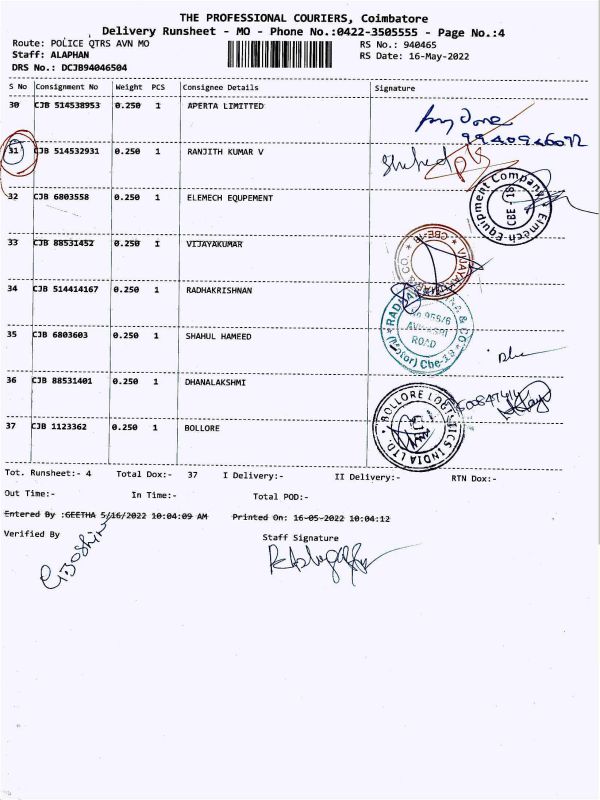 THE PROFESSIONAL COURIERS, Coimbatore
Delivery Runsheet - MO - Phone No.:0422-3505555 - Page No.:4
Route: POLICE QTRS AVN MO
RS No.: 940465
Staff: ALAPHAN
RS Date: 16-May-2022
DRS No.: DCJB94046504
S No Consignment No Weight PCS Consignee Details Signature
30 CJB 514538953 0.250 1 APERTA LIMITTED
31 CJB 514532931 0.250 1 RANJITH KUMAR V
32 CJB 6803558 0.250 1 ELEMECH EQUPEMENT
Elmech-Equipment Company
CBE - 18
33 CJB 88531452 0.250 1 VIJAYAKUMAR
34 CJB 514414167 0.250 1 RADHAKRISHNAN
ROAD
35 CJB 6803603 0.250 1 SHAHUL HAMEED
36 CJB 88531401 0.250 1 DHANALAKSHMI
37 CJB 1123362 0.250 1 BOLLORE
BOLLORE LOGISTICS INDIA LTD.
Tot. Runsheet:- 4 Total Dox:- 37 I Delivery:- II Delivery:- RTN Dox:-
Out Time:- In Time:- Total POD:-
Entered By :GEETHA 5/16/2022 10:04:09 AM Printed On: 16-05-2022 10:04:12
Verified By Staff Signature